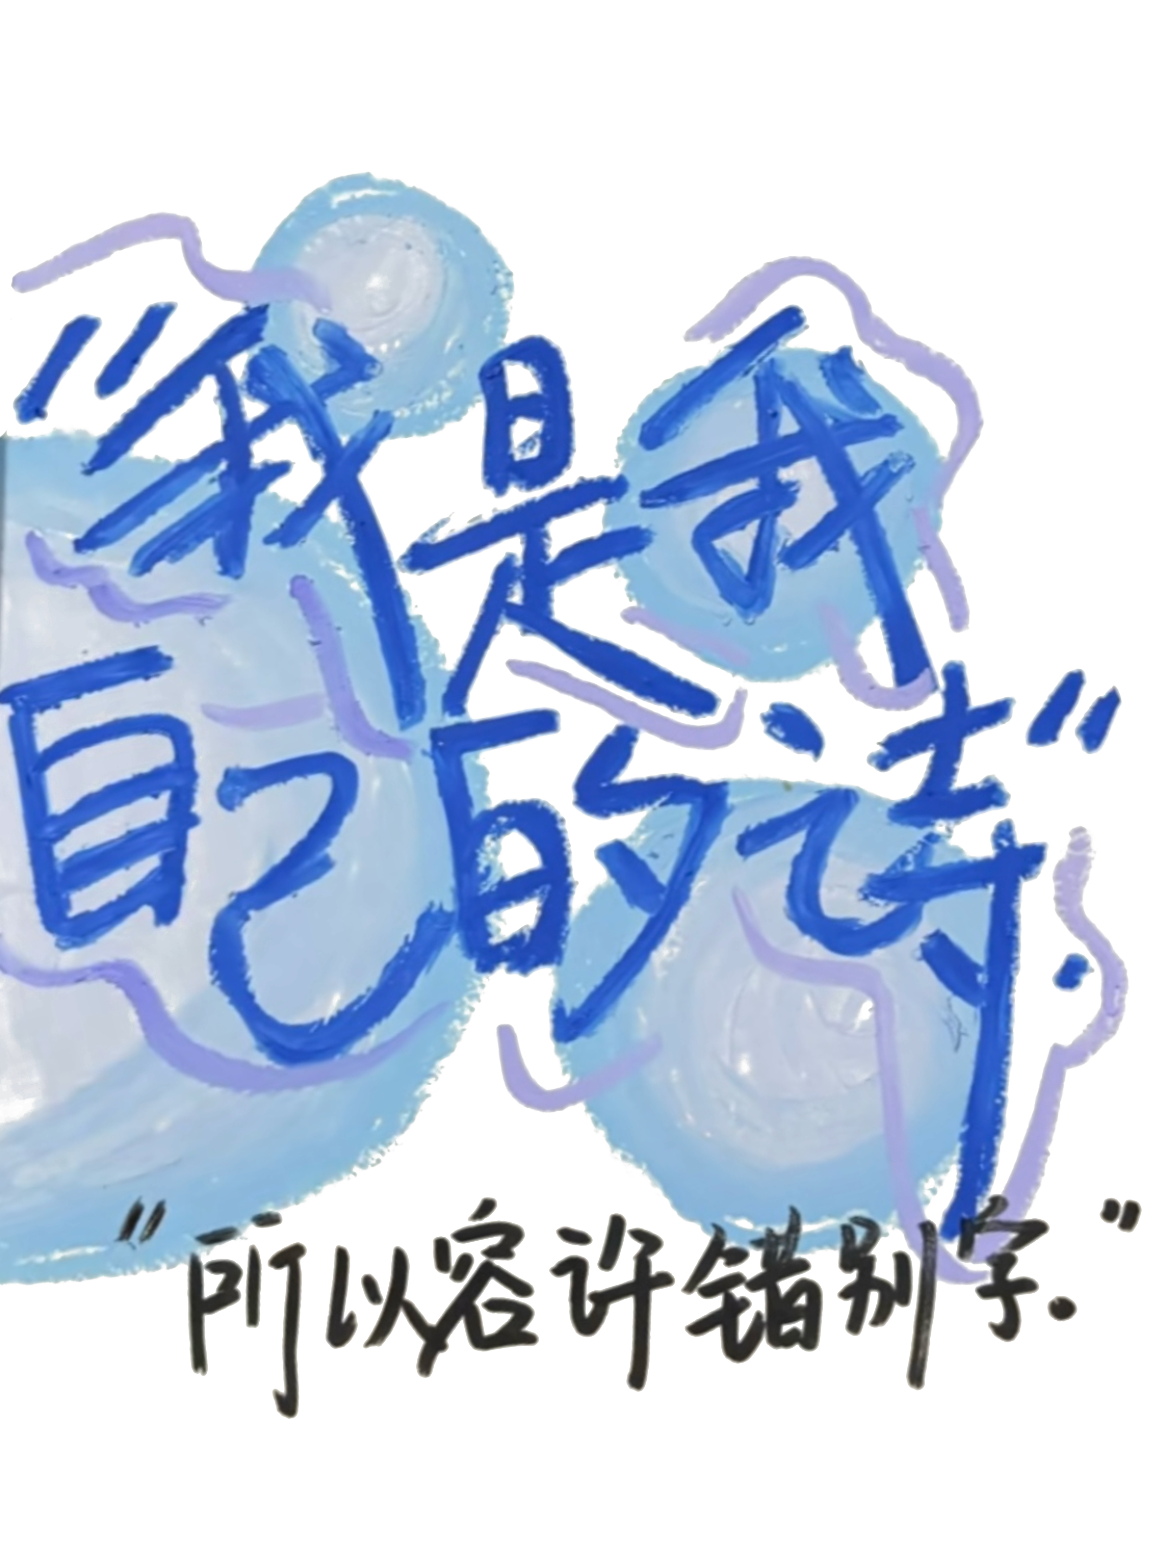 “我是我
自己的诗”.
“所以容许错别字.”